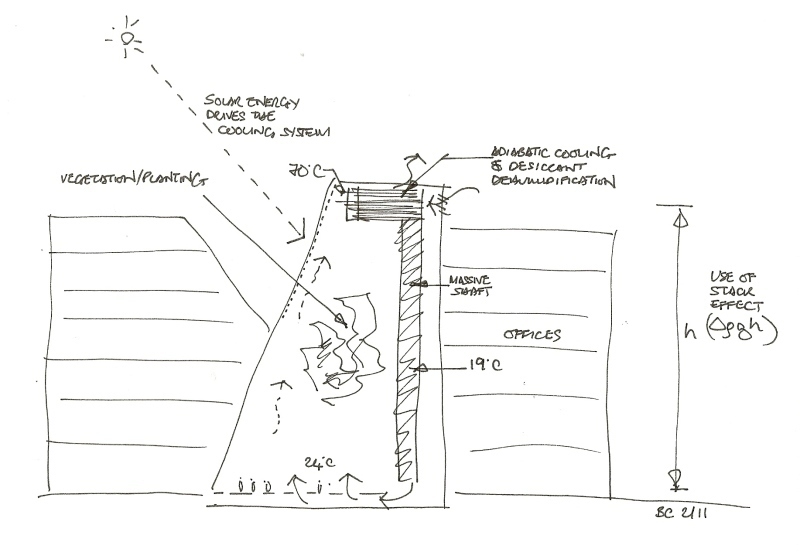 SOLAR ENERGY
DRIVES THE
COOLING SYSTEM
VEGETATION/PLANTING
70°C
ADIABATIC COOLING
& DESICCANT
DEHUMIDIFICATION
MASSIVE
SHAFT
OFFICES
19°C
24°C
USE OF
STACK
EFFECT
h (Δρgh)
BC 2/11